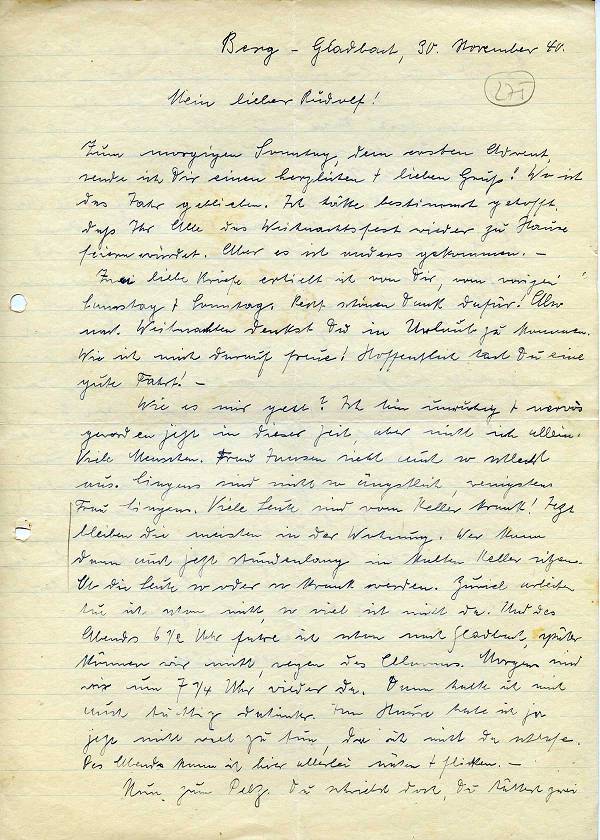 Berg – Gladbach, 30. November 40.
271
Mein lieber Rudolf!
Zum morgigen Sonntag, dem ersten Advent,
sende ich Dir einen herzlichen + lieben Gruß! Wo ist
das Jahr geblieben. Ich hätte bestimmt gehofft
daß Ihr Alle das Weihnachtsfest wieder zu Hause
feiern würdet. Aber es ist anders gekommen. –
Zwei liebe Briefe erhielt ich von Dir, vom vorigen
Samstag + Sonntag. Recht schönen Dank dafür! Also
nach Weihnachten denkst Du in Urlaub zu kommen.
Wie ich mich darauf freue! Hoffentlich hast Du eine
gute Fahrt! –
Wie es mir geht? Ich bin unruhig + nervös
geworden jetzt in dieser Zeit, aber nicht ich allein.
Viele Menschen. Frau Jansen sieht auch so schlecht
aus. Lingens sind nicht so ängstlich, wenigstens
Frau Lingens. Viele Leute sind vom Keller krank! Jetzt
bleiben die meisten in der Wohnung. Wer kann
denn auch jetzt stundenlang im kalten Keller sitzen.
Ob die Leute so oder so krank werden. Zuviel arbeiten
tue ich schon nicht, so viel ist nicht da. Und des
Abends 6 1/2 Uhr fahre ich schon nach Gladbach, später
können wir nicht, wegen des Alarms. Morgens sind
wir um 7 3/4 Uhr wieder da. Dann halte ich mich
auch tüchtig dahinter. Im Hause habe ich ja
jetzt nicht viel zu tun, da ich nicht da schlafe.
Des Abends kann ich hier allerlei nähen + flicken. –
Nun, zum Pelz. Du schriebst doch, Du hättest zwei